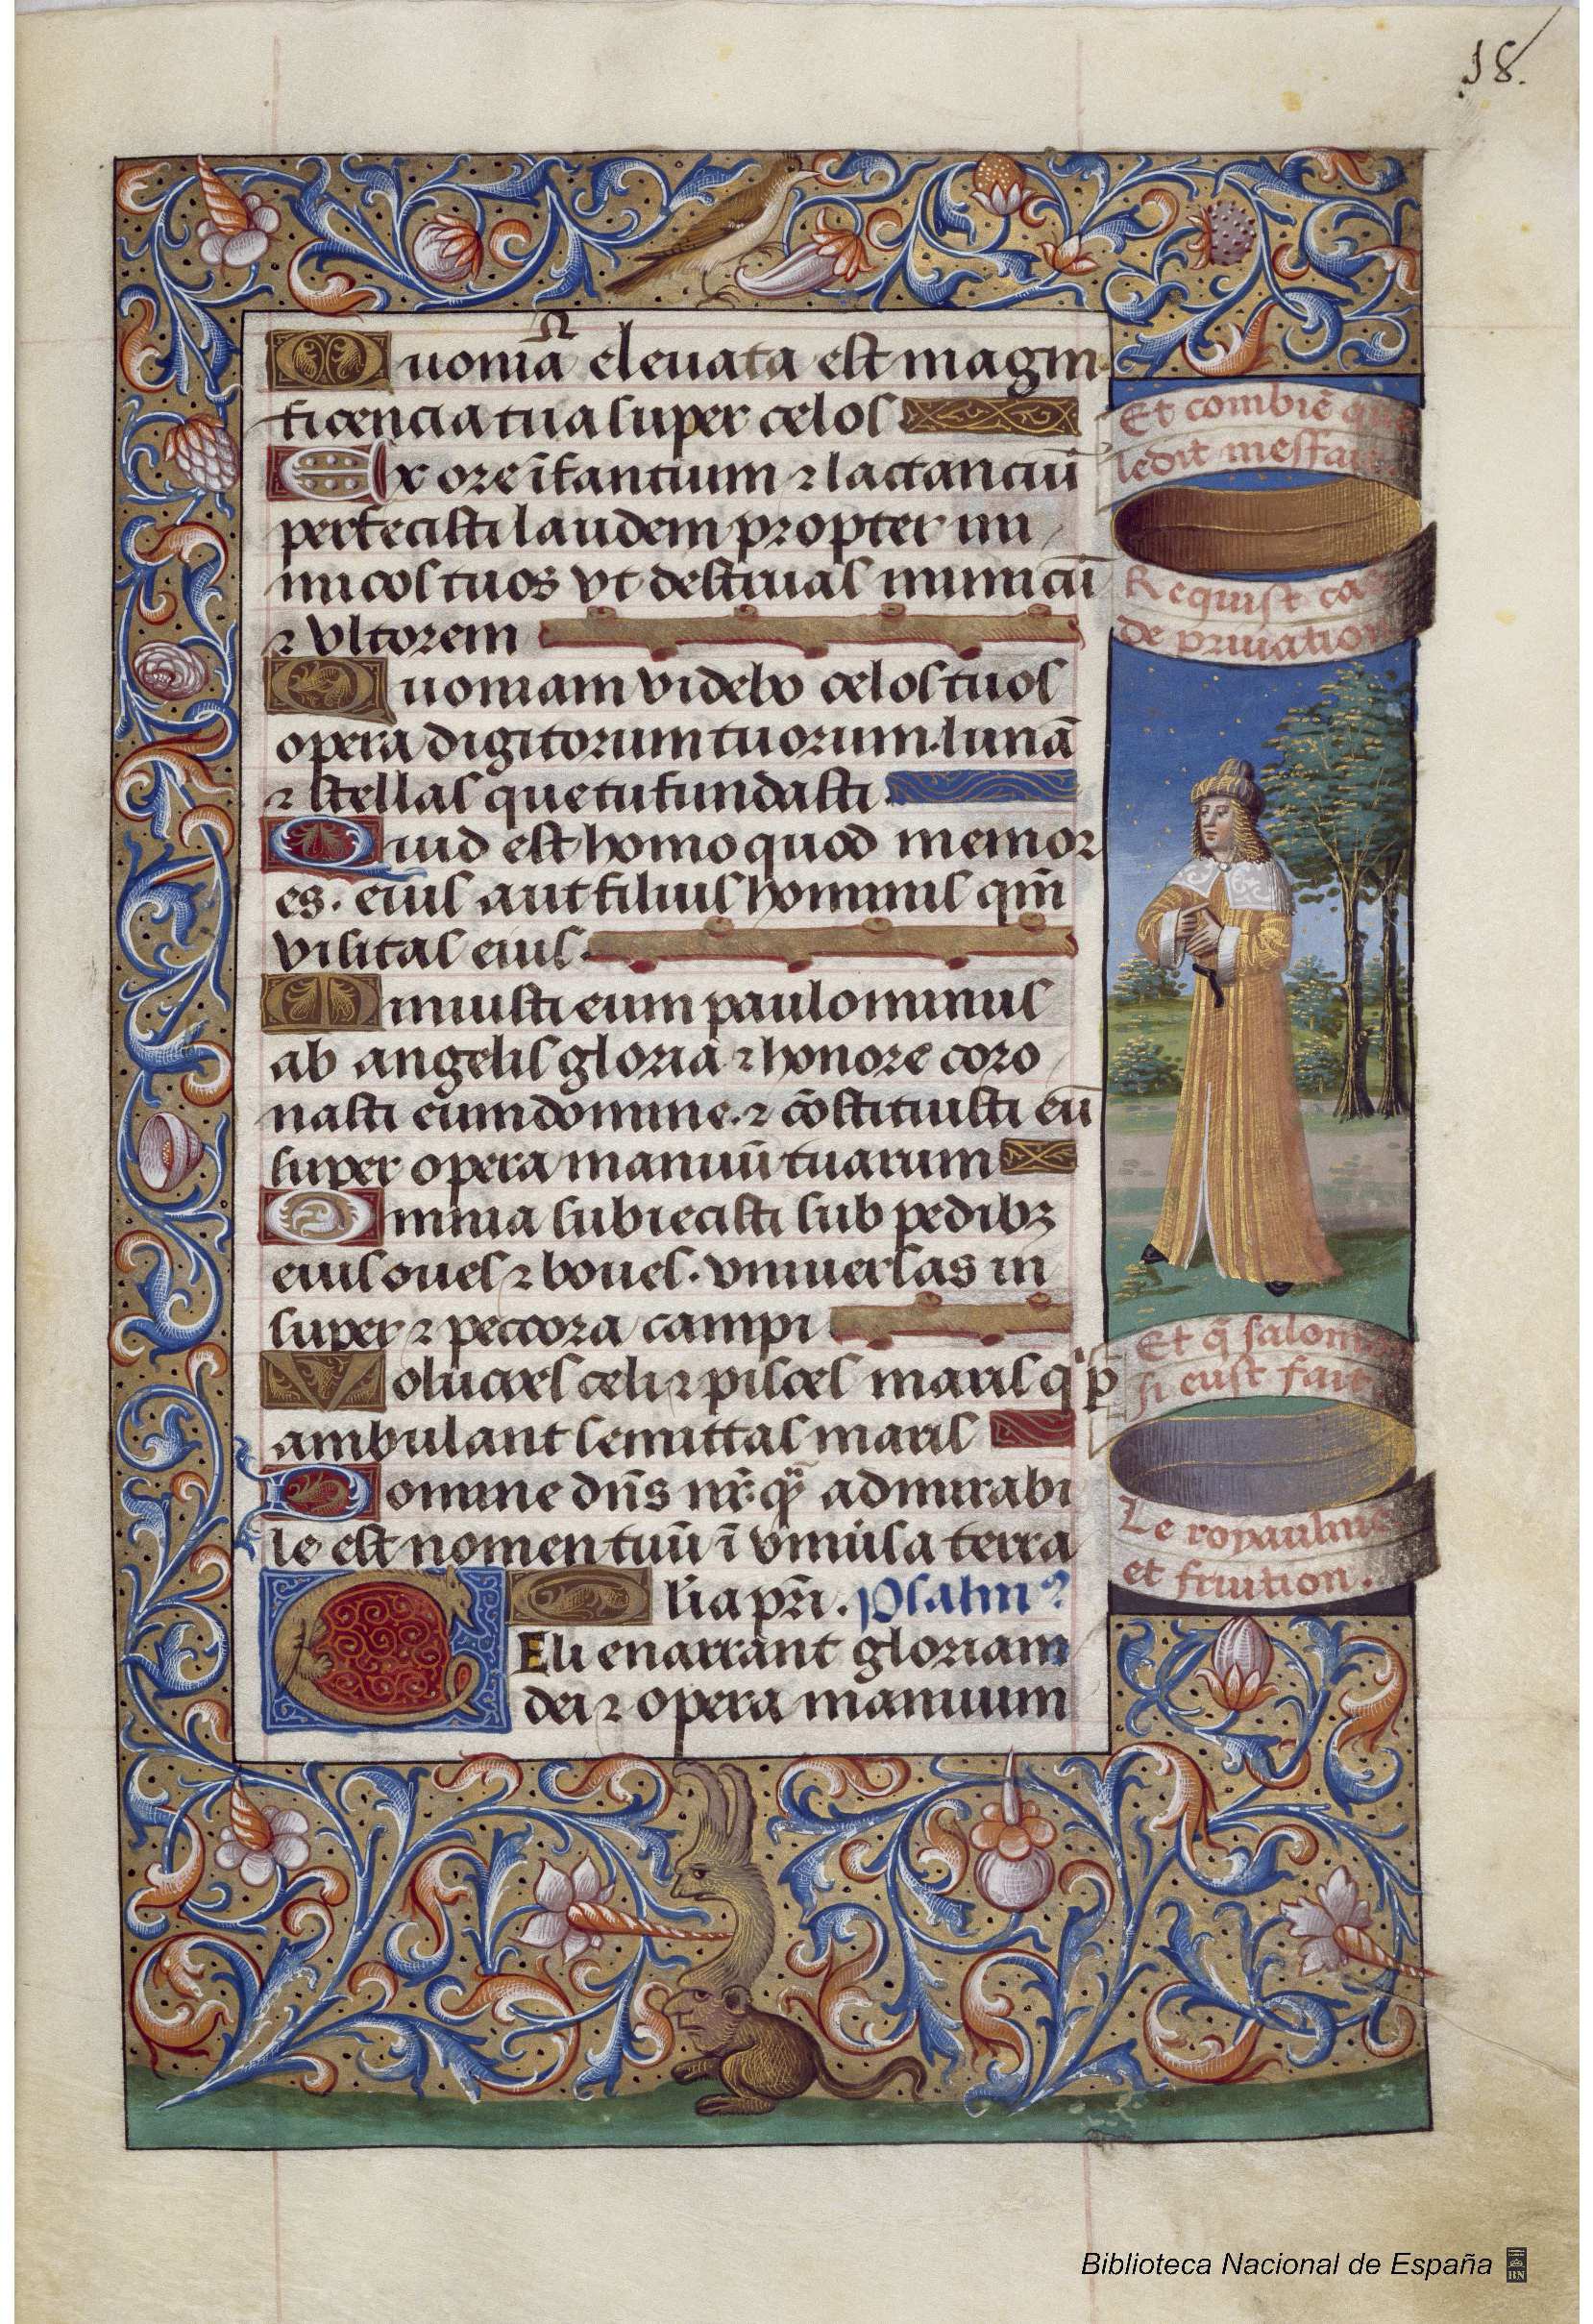 18.
Quoniā eleuata est magni
ficencia tua super celos
Ex ore īfantium ⁊ lactanciū
perfecisti laudem propter ini
micos tuos vt destruas inimicū
⁊ vltorem
Quoniam videbo celos tuos
opera digitorum tuorum. lunā
⁊ stellas que tu fundasti.
Quid est homo quod memor
es. eius aut filius hominis qm̄
visitas eius.
Minuisti eum paulominus
ab angelis gloria ⁊ honore coro
nasti eum domine. ⁊ cōstituisti eū
super opera manuū tuarum
Omnia subiecisti sub pedibꝫ
eius oues ⁊ boues. vniuersas in
super ⁊ peccora campi
Volucres celi ⁊ pisces maris q̇ ꝑ
ambulant semittas maris
Domine dn̄s nr̄. q̄ admirabi
le est nomen tuū ī vniūsa terra
lia pr̄i. Psalmꝰ
CEli enarrant gloriam
dei ⁊ opera manuum
Et combiē que
ledit meffait
Requist cas
de priuation
Et q̄ salomon
si eust fait
Le royaulme
et fruition.
Biblioteca Nacional de España
BN